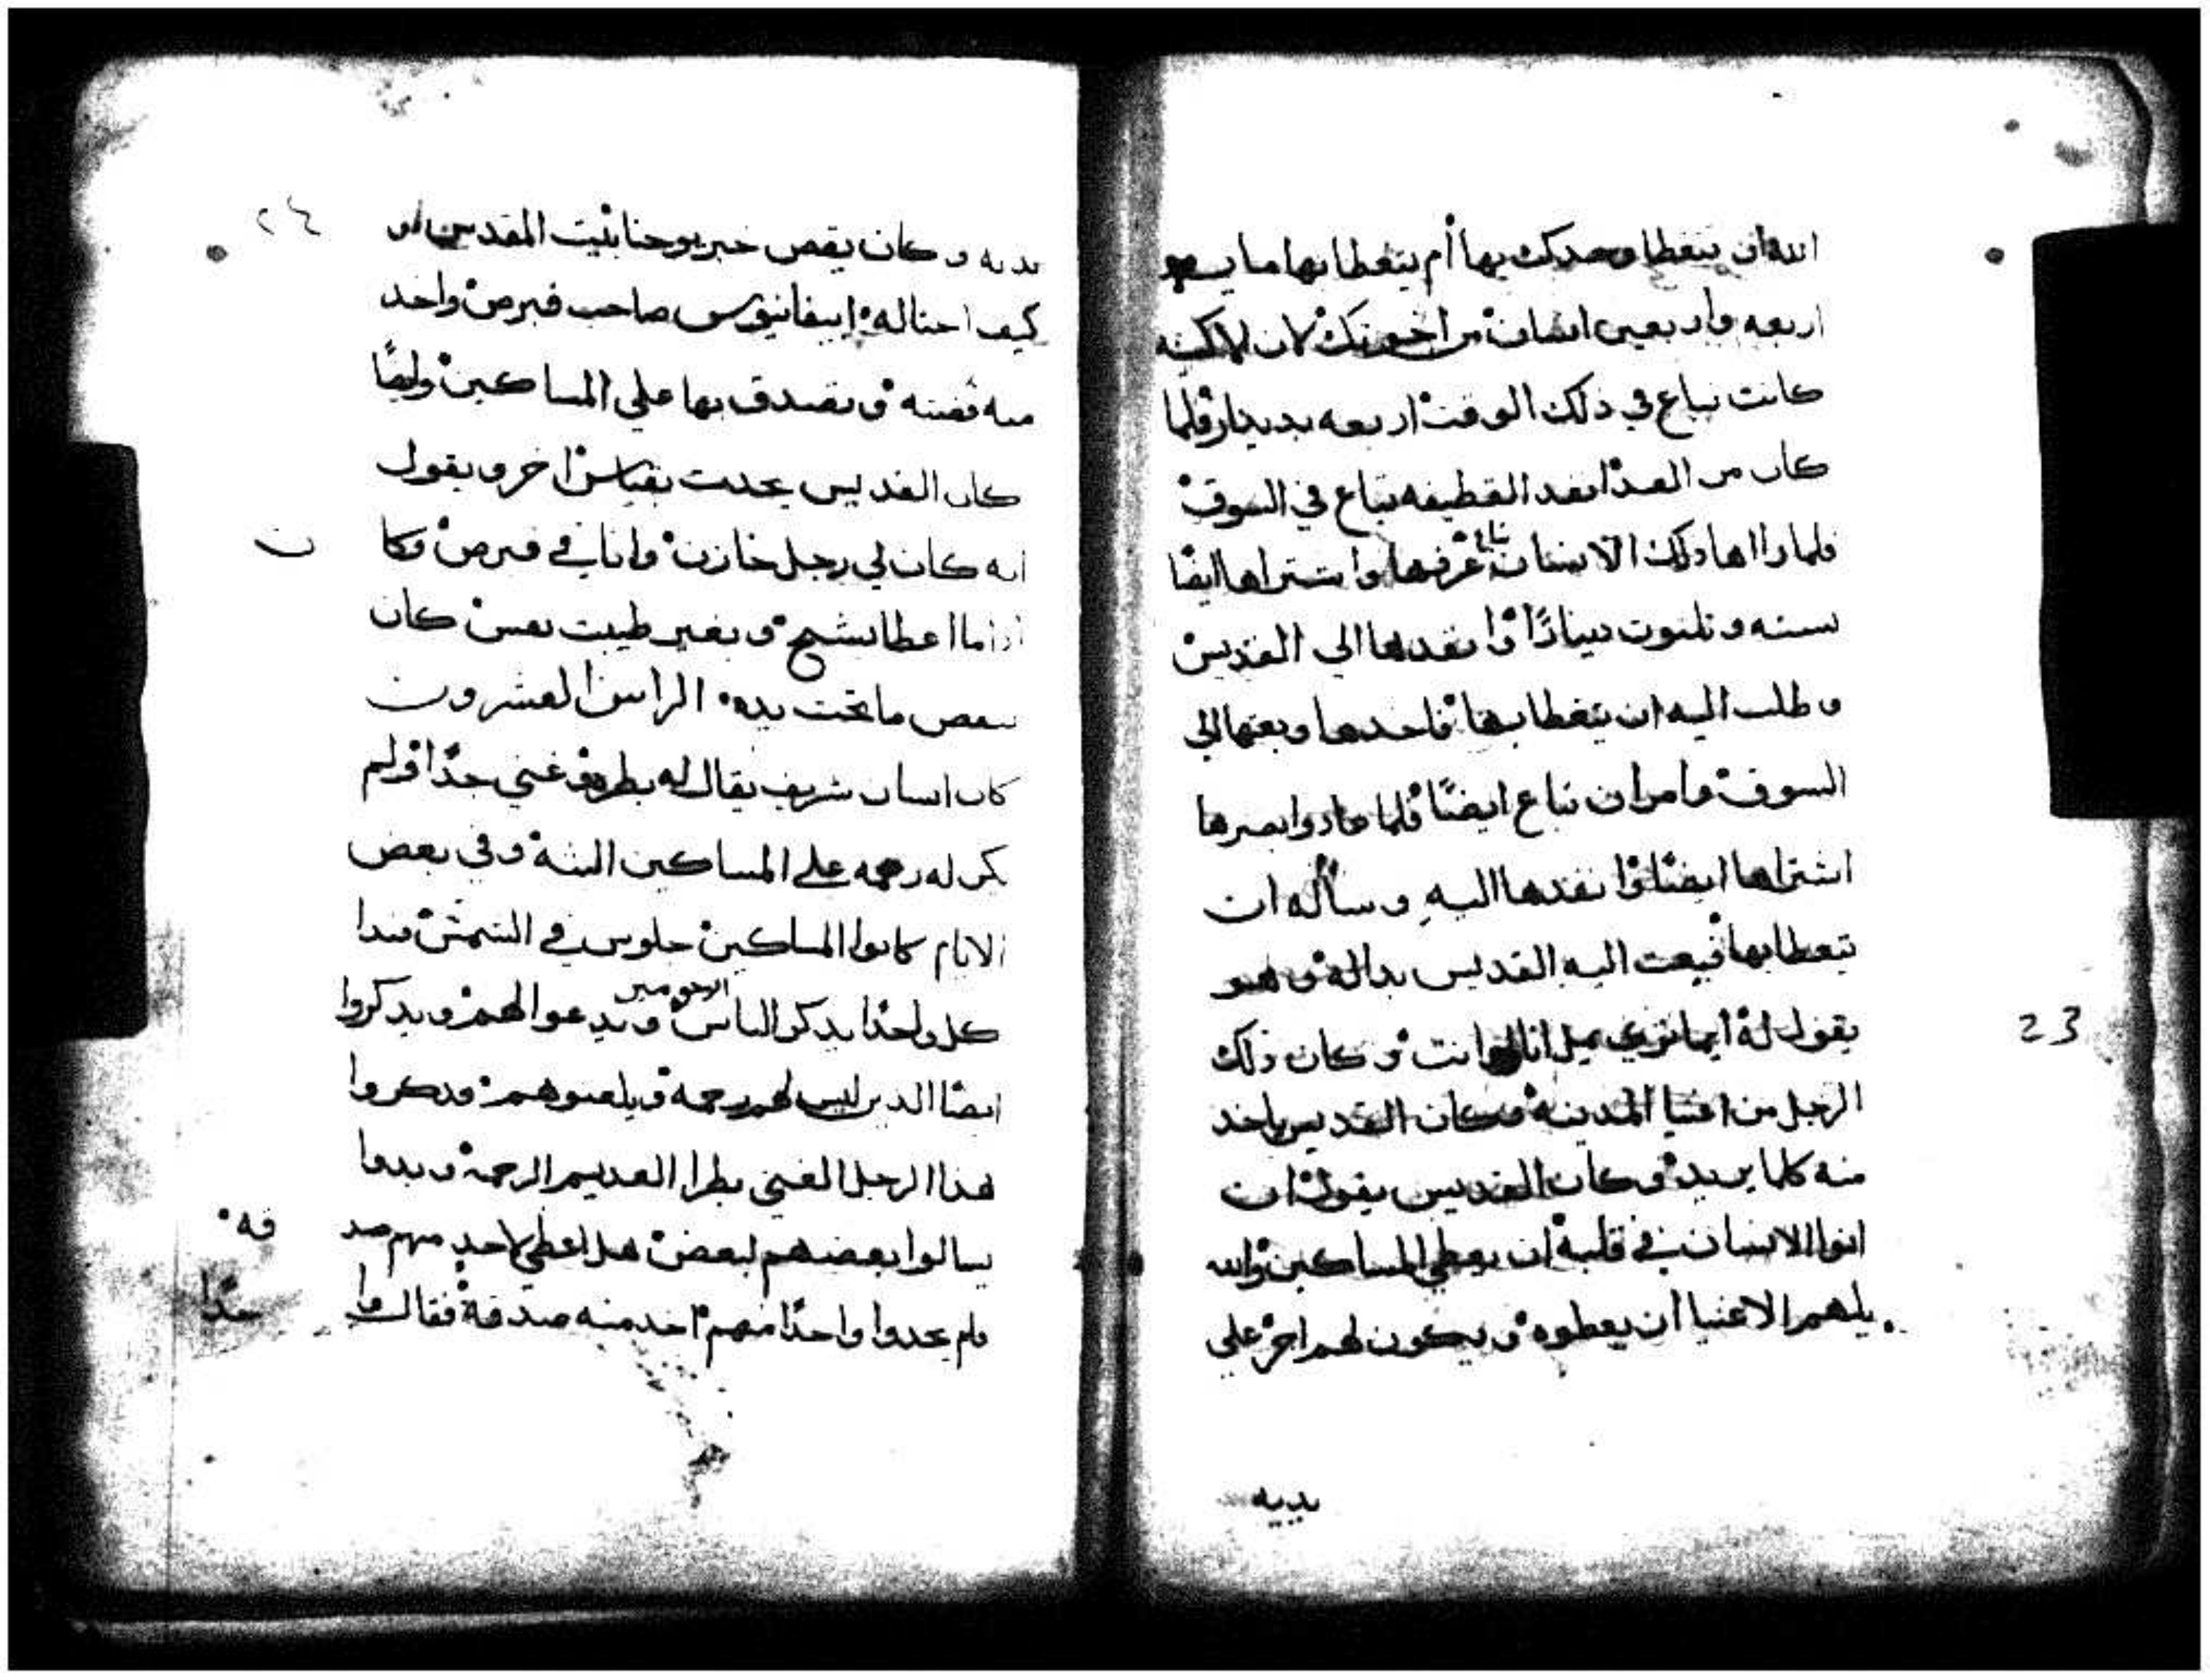 الله ان يتغطا وحدك بها أم يتغطا بها مايه و
اربعه واربعين انسان من اخوتك لان
كانت تباع في ذلك الوقت اربعه بدينار فلما
كان من الغد انفد القطيفه تباع في السوق
فلما رااها ذلك الانسان عرفها واشتراها ايضًا
بسته وتلتون دينارًا وانفدها الي القديس
وطلب اليه ان يتغطا بها فاخدها وبعتها الي
السوق وامر ان تباع ايضًا فلما عاد وابصرها
اشتراها ايضًا وانفدها اليه وسأله ان
يتغطا بها فبعت اليه القديس بداله وهو
يقول له ايما يمل انا او انت وكان ذلك
23
الرجل من اغنيا المدينه وكان القديس ياخد
منه كلما يريد وكان القديس يقول ان
انوا الانسان في قلبه ان يعطي المساكين والله
يلهم الاغنيا ان يعطوه ويكون لهم اجر علي
يديه
٢٤
يديه وكان يقص خبر يوحنا بيت المقدس
كيف احتاله ابيفانيوس صاحب قبرص واخد
منه فضته وتصدق بها علي المساكين وايضًا
كان القديس يحدت بقياس اخر ويقول
انه كان لي رجل خازن وانا في قبرص وكا ن
اذا ما اعطا بشح وبغير طيبت نفس كان
ينقص ما تحت يده الراس العشرون
كان انسان شريف يقال له غني جدًا ولم
يكن له رحمه علي المساكين البته وفي بعض
الايام كانوا المساكين جلوس في الشمس فبدا
كل واحدًا يدكر الناس الرحومين ويدعوا لهم ويدكروا
ايضًا الدين ليس لهم رحمه ويلعنوهم فدكروا
هدا الرجل الغني بطرا العديم الرحمة وبدوا
يسالوا بعضهم لبعض هل اعطي لاحد منهم صد قه
فلم يجدوا واحدًا منهم اخد منه صدقة فقال وا حدًا